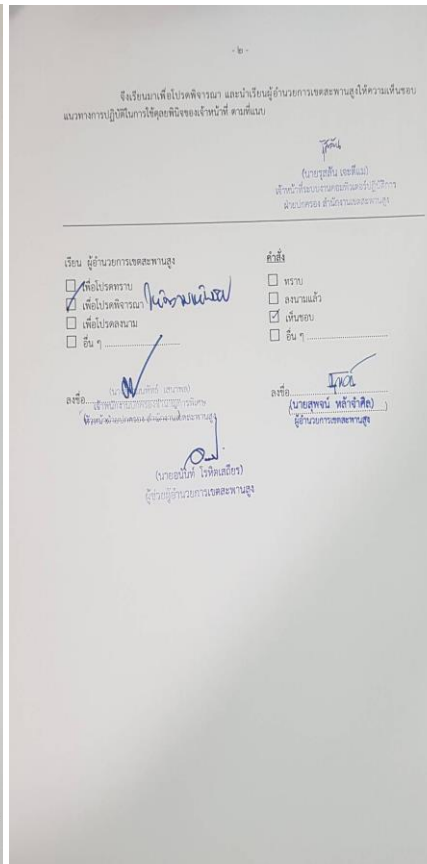 - ๒ -
จึงเรียนมาเพื่อโปรดพิจารณา และนำเรียนผู้อำนวยการเขตสะพานสูงให้ความเห็นชอบ
แนวทางการปฏิบัติในการใช้ดุลยพินิจของเจ้าหน้าที่ ตามที่แนบ
เจ้าหน้าที่ระบบงานคอมพิวเตอร์ปฏิบัติการ
ฝ่ายปกครอง สำนักงานเขตสะพานสูง
เรียน ผู้อำนวยการเขตสะพานสูง
เพื่อโปรดทราบ
เพื่อโปรดพิจารณา ให้ความเห็นชอบ
เพื่อโปรดลงนาม
อื่น ๆ ........................
ลงชื่อ
หัวหน้าฝ่ายปกครอง สำนักงานเขตสะพานสูง
คำสั่ง
ทราบ
ลงนามแล้ว
เห็นชอบ
อื่น ๆ ........................
ลงชื่อ
(นายสุพจน์ หล้าจำศิล)
ผู้อำนวยการเขตสะพานสูง
(นายธนันท์ โรหิตเสถียร)
ผู้ช่วยผู้อำนวยการเขตสะพานสูง